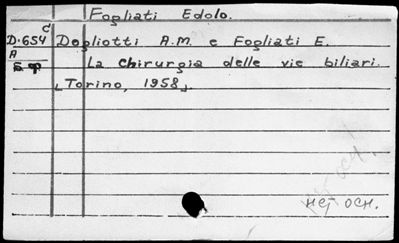 Fogliati Edolo.
C
D-654 Dogliotti A.M. e Fogliati E.
A
La chirurgia delle vie biliari.
[Torino, 1958].
НСТ ОСН.